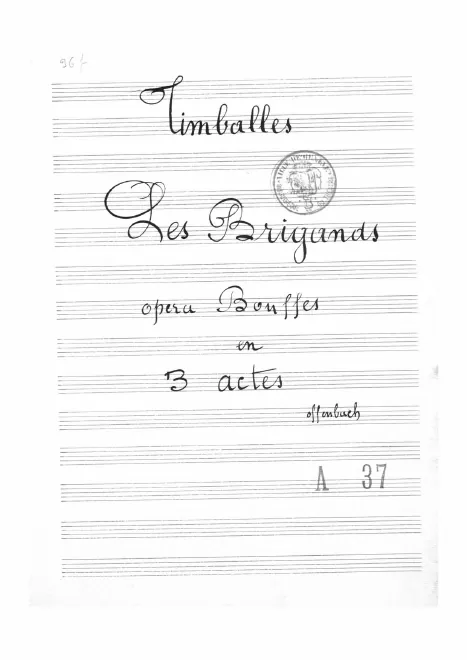 96 f
Timballes
Les Brigands
opera Bouffes
en
3 actes
offenbach
A 37